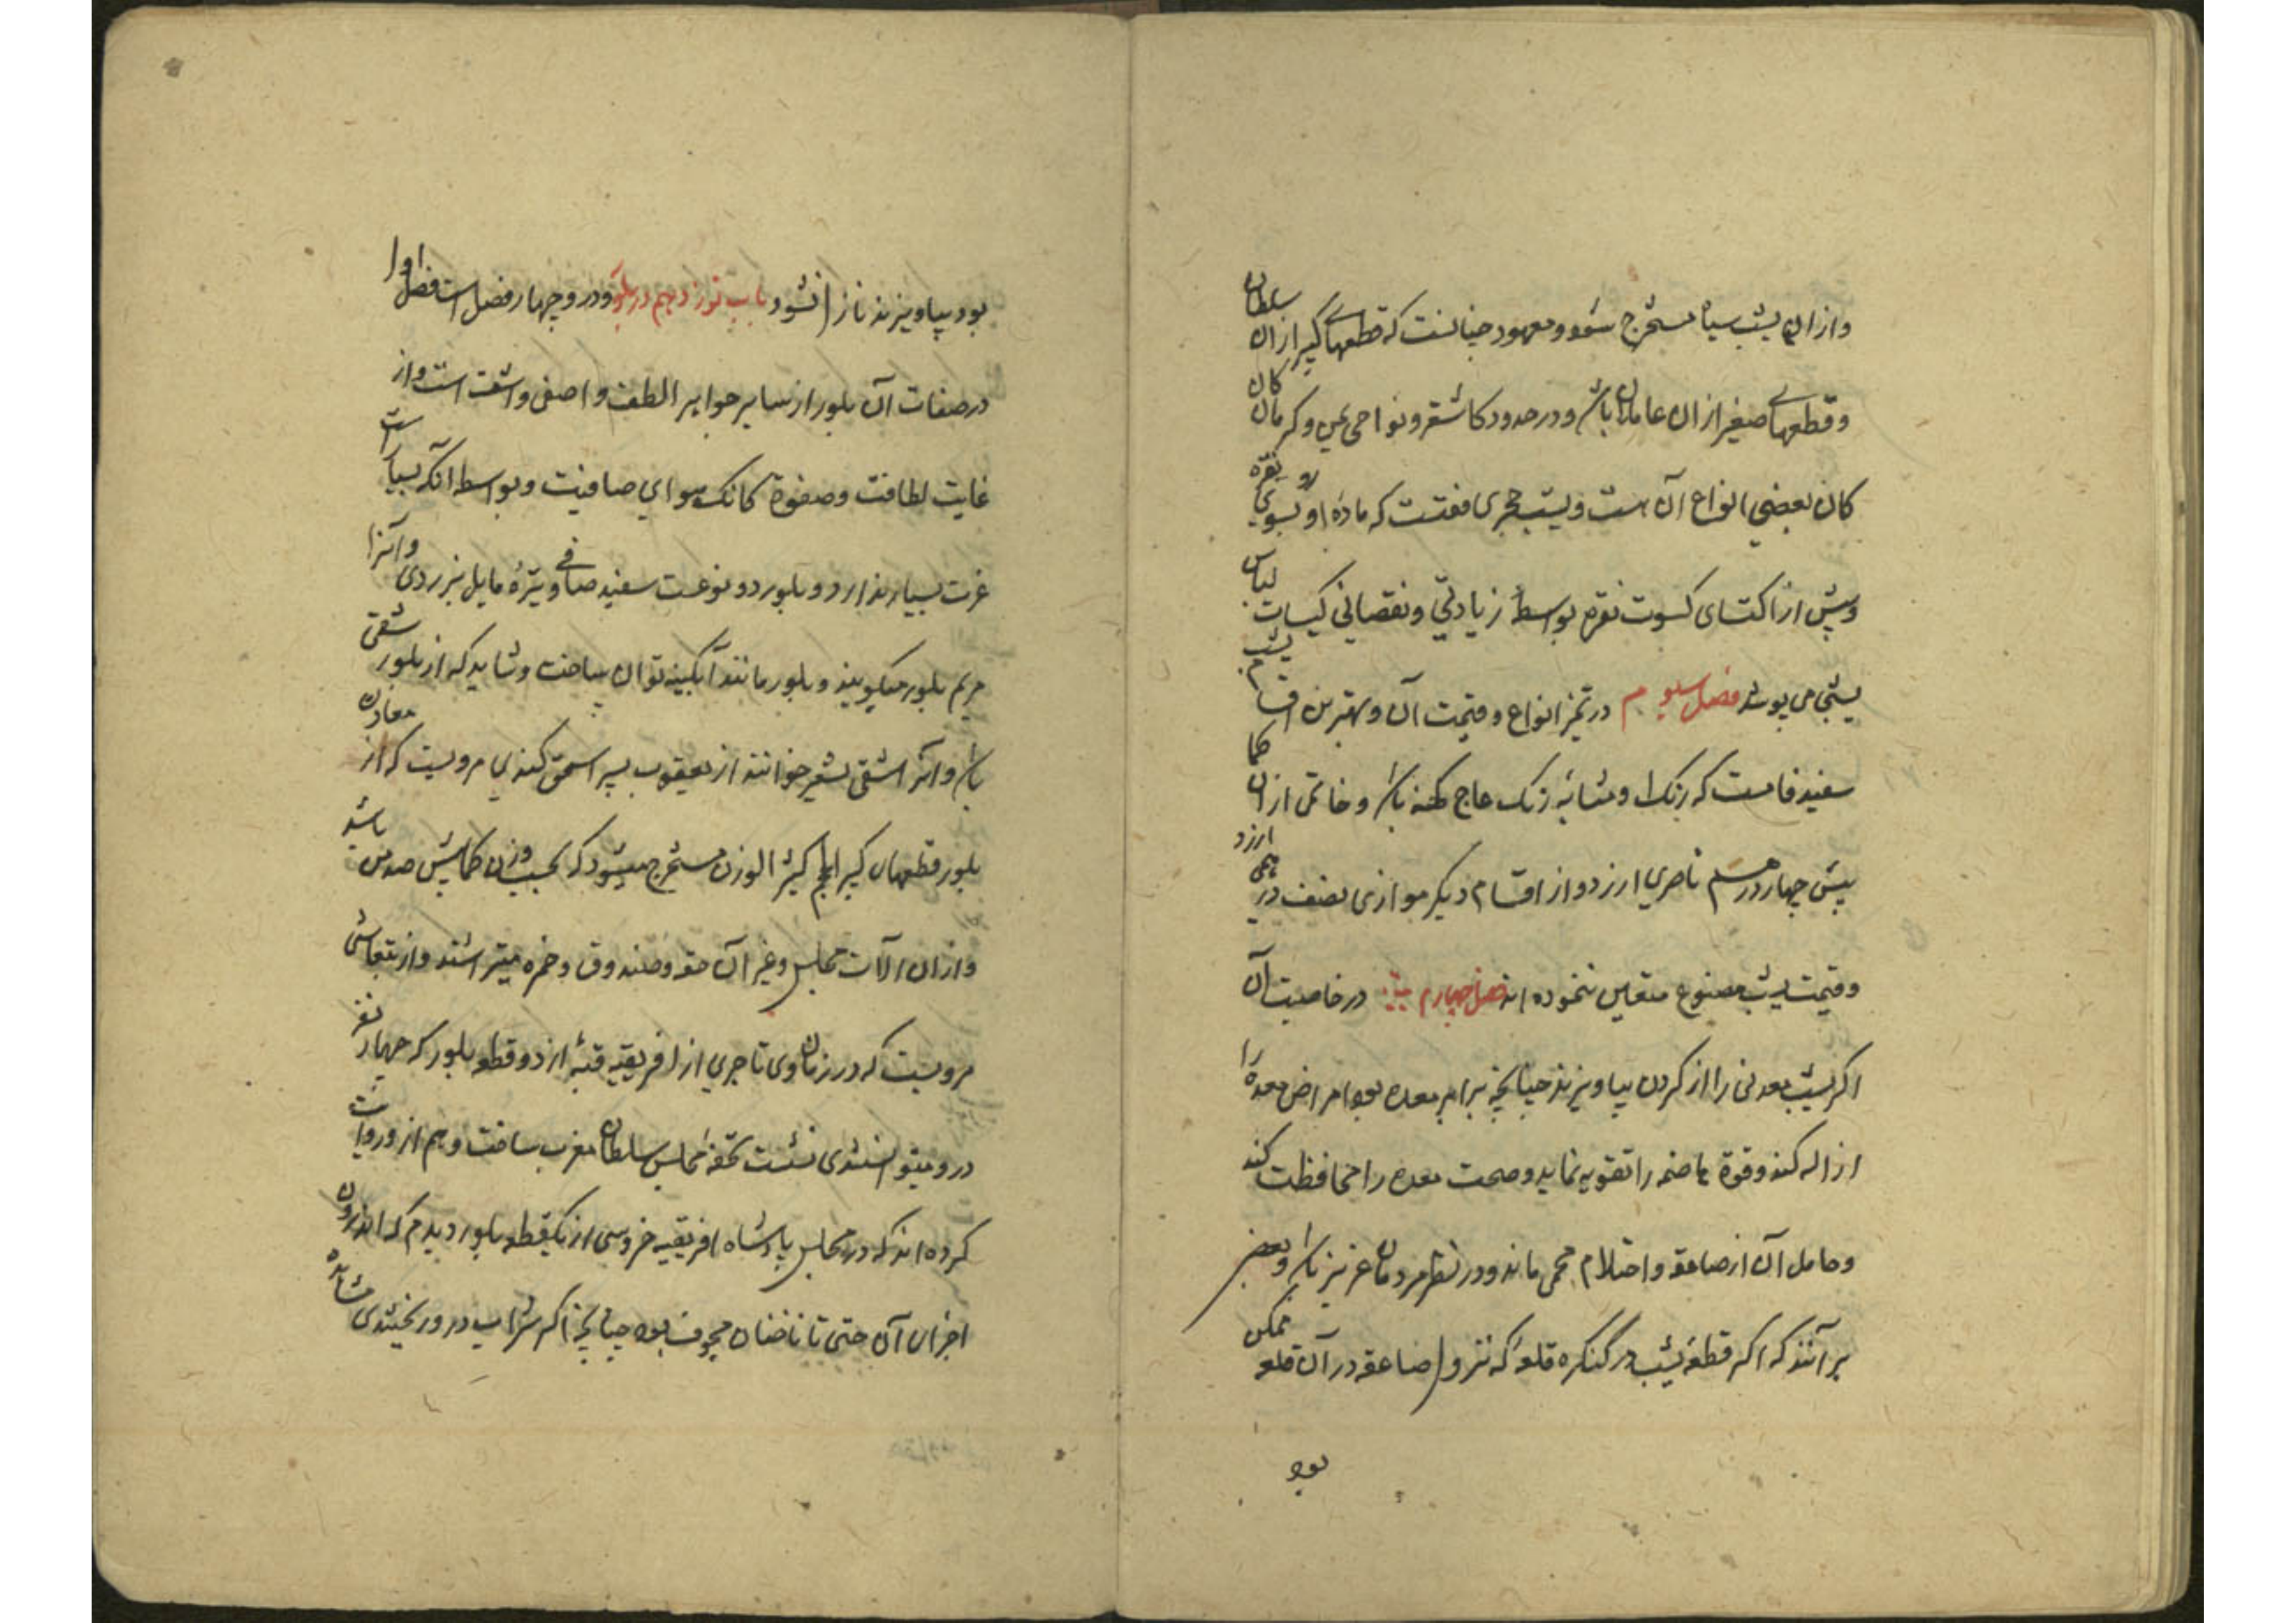 وازان یشب سیاه مستخرج شود و معهود چنانست که قطعهای کبیر ازان سلطان
و قطعهای صغیر ازان عاملان باشد و در حدود کاشغر و نواحی و کرمان کان
کان بعضی انواع آن هست و یشب حجری که ماده او بسوی نقره
و پیش از اکتسای کسوت نقره بواسطه زیادتی و نقصانی کیسات لباس
یشبی می پوشد فصل سیوم در تمیز انواع و قیمت آن و بهترین اقسام یشب
سفید فامست که رنگ او مشابه رنگ عاج کهنه باشد و خاتمی ازان
بیش چهار درهم ناصری ارزد و از اقسام دیگر موازی نصف درهمی ارزد
و قیمت یشب مصنوع متعین ننموده اند فصل چهارم در خاصیت آن
اکر یشب معدنی را از کردن بیاویزند چنانچه برابر معده بود امراض معده را
ازاله کند و قوة هاضمه را تقویه نماید و صحت معده را محافظت کند
و حامل آن از صاعقه و احتلام محمی ماند و در نظر مردمان عزیز باشد و بعضی
برآنند که اکر قطعه یشب در کنکره قلعه که نزول صاعقه در آن قلعه ممکن
بود
بود بیاویزند نازل نشود باب نوزدهم در بلور و درو چهار فصل است فصل اول
در صفات آن بلور از سایر جواهر الطف و اصفی و اشف است و از
غایت لطافت و صفوة کانک هوای صافیت و بواسطه آنکه بسیار است
عزت بسیار ندارد و بلور دو نوعست سفید صافی و تیره مایل بزردی و آنرا
مریم بلور میکویند و بلور مانند آبکینه توان ساخت و شاید که از بلور شقی
باشد و آنرا شقی بشعیر خوانند از یعقوب پسر اسحق کندی مرویست که از معادن
بلور قطعهای کبیر الحجم کثیر الوزن مستخرج میشود که بحسب وزن کمابیش صد من باشد
وازان آلات مجلس و غیر آن حقه و صندوق و خمره میتراشند و از
مرویست که در زمان وی تاجری از افریقیه قبه از دو قطعه بلور که چهار نفر
درو میتوانستندی نشست تحفه مجلس سلطان مغرب ساخت و هم ازو روایت
کرده اند که در مجلس پادشاه افریقیه خروسی از یکقطعه بلور دیدم که اندرون
اجزای آن حتی تا ناخنان مجوف بود چنانچه اکر شراب درو ریختندی مشاهده